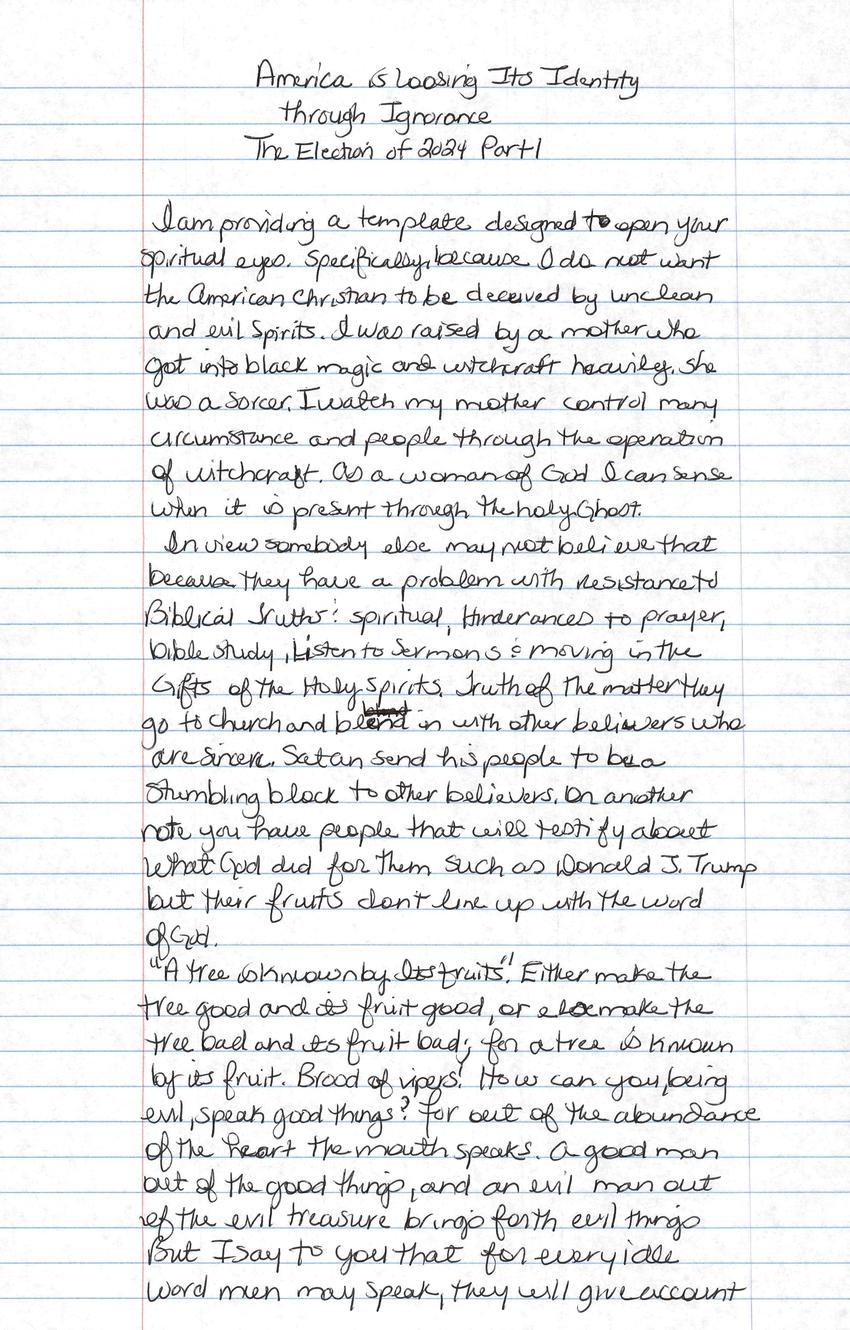 America is Loosing Its Identity
through Ignorance
The Election of 2024 Part 1
I am providing a template designed to open your
spiritual eyes. Specifically, because I do not want
the American Christian to be deceived by unclean
and evil Spirits. I was raised by a mother who
got into black magic and witchcraft heavily. She
was a Sorcer. I watch my mother control many
circumstance and people through the operation
of witchcraft. As a woman of God I can sense
when it is present through the holy Ghost.
In view somebody else may not believe that
because they have a problem with resistance to
Biblical Truths: spiritual, Hinderances to prayer,
bible study, Listen to Sermons & moving in the
Gifts of the Holy Spirits. Truth of the matter they
go to church and blend in with other believers who
are sincere. Satan send his people to be a
Stumbling block to other believers. On another
note you have people that will testify about
what God did for them such as Donald J. Trump
but their fruits don't line up with the word
of God.
"A tree is known by Its fruits". Either make the
tree good and its fruit good, or else make the
tree bad and its fruit bad; for a tree is known
by its fruit. Brood of vipers! How can you, being
evil, speak good things? For out of the abundance
of the heart the mouth speaks. A good man
out of the good things, and an evil man out
of the evil treasure brings forth evil things
But I say to you that for every idle
word men may speak, they will give account